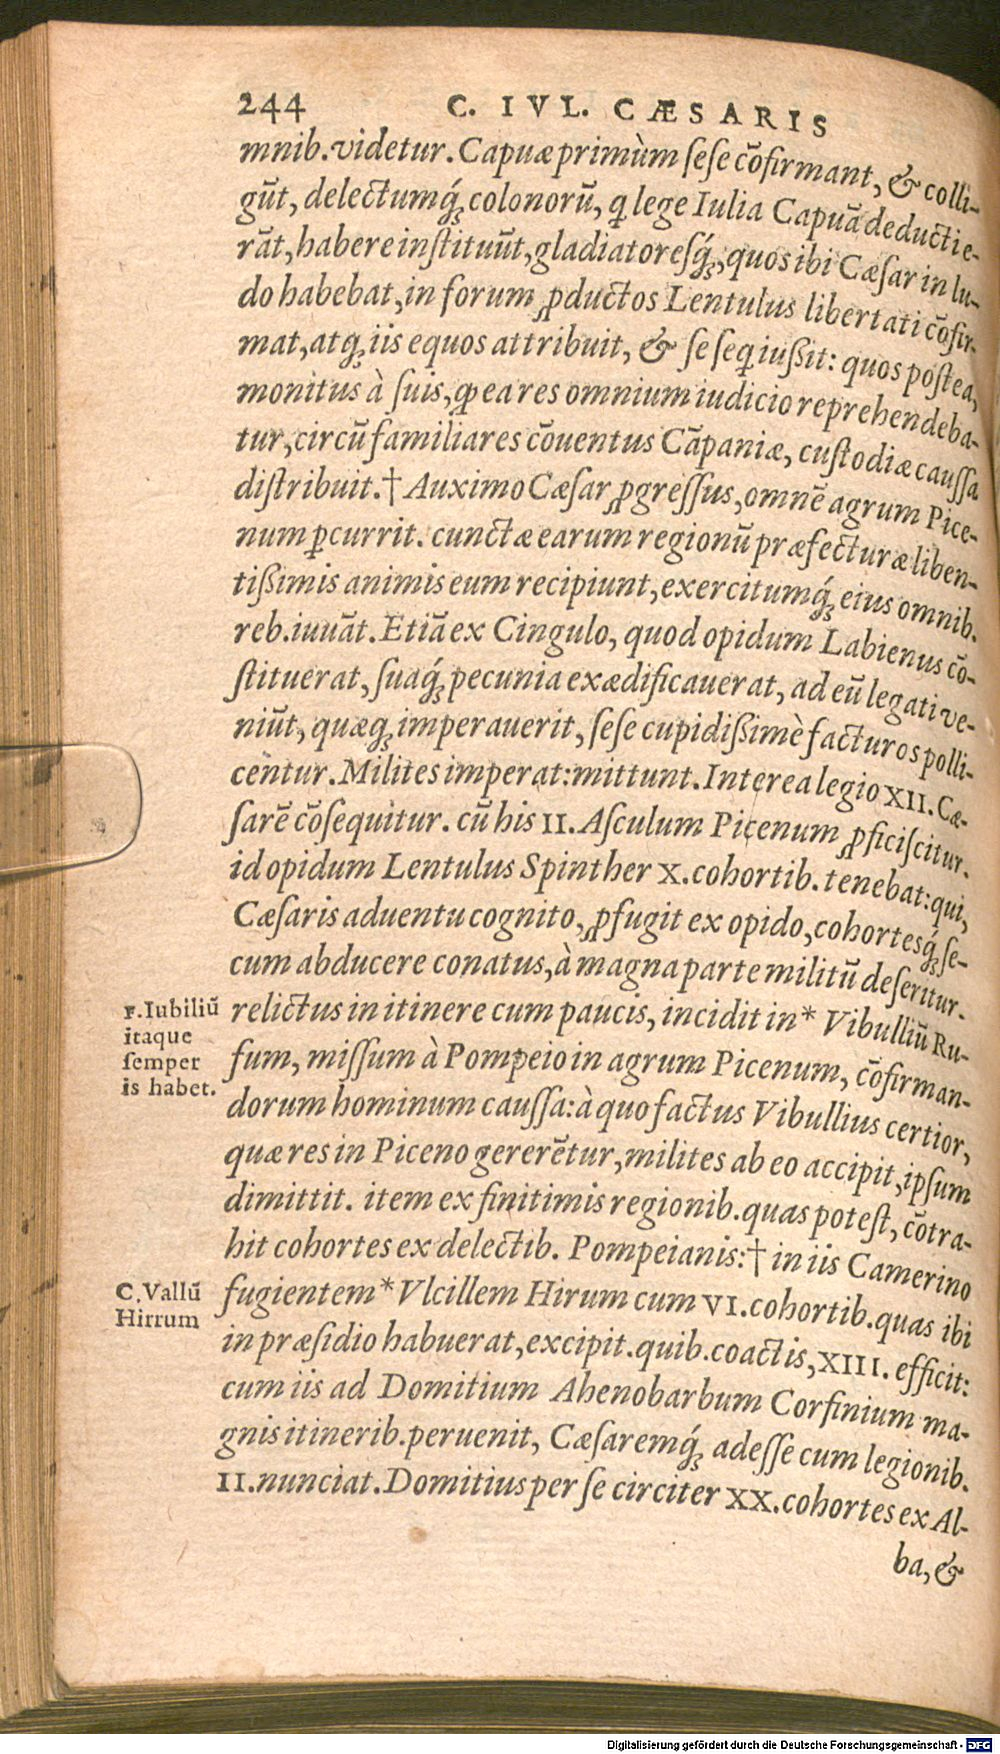 244 C. IVL. CÆSARIS
mnib. videtur. Capuæ primùm ſeſe cōfirmant, & colli-
gūt, delectumq́; colonorū, q lege Iulia Capuā deducti e-
rāt, habere inſtituūt, gladiatoresq́;, quos ibi Cæſar in lu-
do habebat, in forum ꝓductos Lentulus libertati cōfir-
mat, atq; iis equos attribuit, & ſe ſeq iußit: quos poſtea,
monitus à ſuis, ꝙ ea res omnium iudicio reprehendeba-
tur, circū familiares cōuentus Cāpaniæ, cuſtodiæ cauſſa
diſtribuit.† Auximo Cæſar ꝓgreſſus, omnē agrum Pice-
num ꝑcurrit. cunctæ earum regionū præfecturæ liben-
tißimis animis eum recipiunt, exercitumq́; eius omnib.
reb. iuuāt. Etiā ex Cingulo, quod opidum Labienus cō-
ſtituerat, ſuaq́; pecunia exædificauerat, ad eū legati ve-
niūt, quæq; imperauerit, ſeſe cupidißimè facturos polli-
centur. Milites imperat: mittunt. Interea legio XII. Cæ-
ſarē cōſequitur. cū his II. Aſculum Picenum ꝓficiſcitur.
id opidum Lentulus Spinther X. cohortib. tenebat: qui,
Cæſaris aduentu cognito, ꝓfugit ex opido, cohortesq́; ſe-
cum abducere conatus, à magna parte militū deſeritur.
relictus in itinere cum paucis, incidit in* Vibulliū Ru-
fum, miſſum à Pompeio in agrum Picenum, cōfirman-
dorum hominum cauſſa: à quo factus Vibullius certior,
quæ res in Piceno gererētur, milites ab eo accipit, ipſum
dimittit. item ex finitimis regionib. quas poteſt, cōtra-
hit cohortes ex delectib. Pompeianis:† in iis Camerino
fugientem* Vlcillem Hirum cum VI. cohortib. quas ibi
in præſidio habuerat, excipit. quib. coactis, XIII. efficit:
cum iis ad Domitium Ahenobarbum Corfinium ma-
gnis itinerib. peruenit, Cæſaremq́; adeſſe cum legionib.
II. nunciat. Domitius per ſe circiter XX. cohortes ex Al-
ba, &
F. Iubiliū
itaque
ſemper
is habet.
C. Vallū
Hirrum
Digitalisierung gefördert durch die Deutsche Forschungsgemeinschaft - DFG